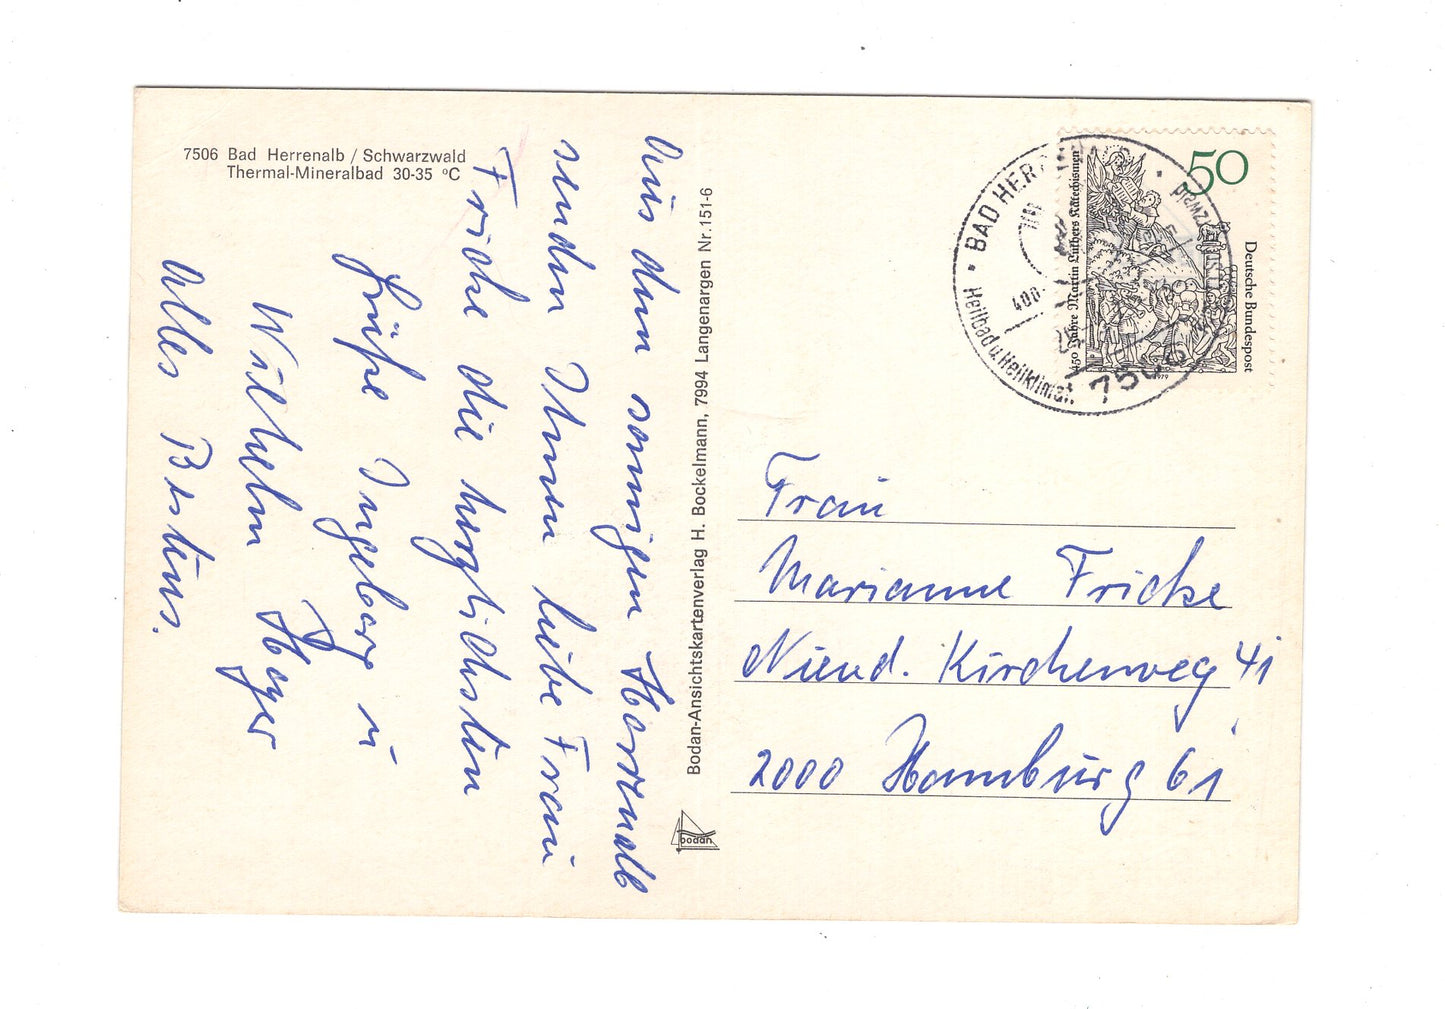 7506 Bad Herrenalb / Schwarzwald
Thermal-Mineralbad 30-35 ºC
Aus dem sonnigen Herrenalb
senden Ihnen liebe Frau
Fricke die herzlichsten
Grüße Ingeborg u
Wilhelm Hoyer
Alles Bestens.
Bodan-Ansichtskartenverlag H. Bockelmann, 7994 Langenargen Nr. 151-6
bodan
50
Deutsche Bundespost
450 Jahre Martin Luthers Katechismen
1979
BAD HERRENALB
Heilbad u. Heilklimat.
7506
Frau
Marianne Fricke
Niend. Kirchenweg 41
2000 Hamburg 61